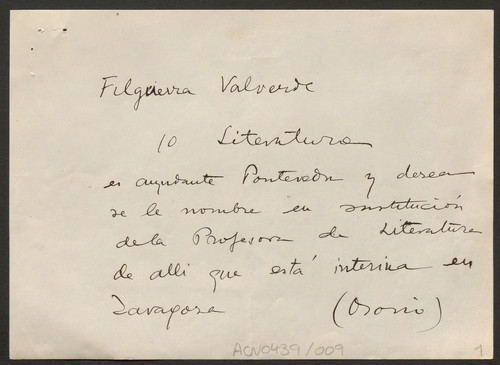 Filgueira Valverde
10 Literatura
es ayudante Pontevedra y desea
se le nombre en sustitución
de la Profesora de Literatura
de alli que está interina en
Zaragoza (Osorio)
ACV0439/009
1